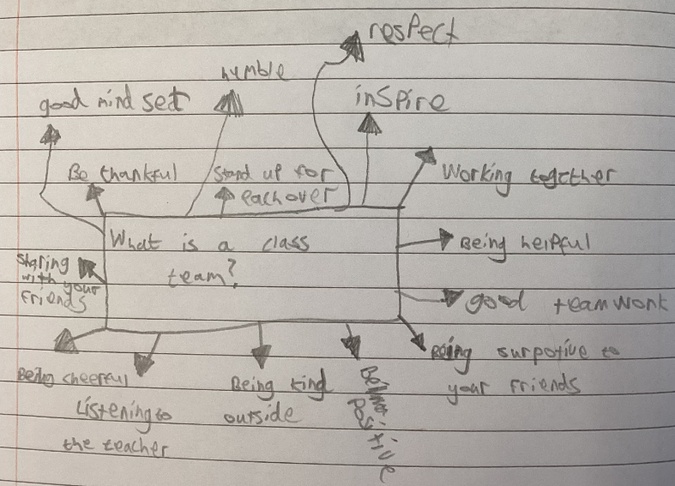 respect
humble
good mind set
inspire
Be thankful
Stand up for
eachover
Working together
What is a class
team?
Being helpful
Sharing
with your
Friends
good teamwork
Being surpotive to
your Friends
Being cheerful
Listening to
the teacher
Being kind
outside
Being
Positive